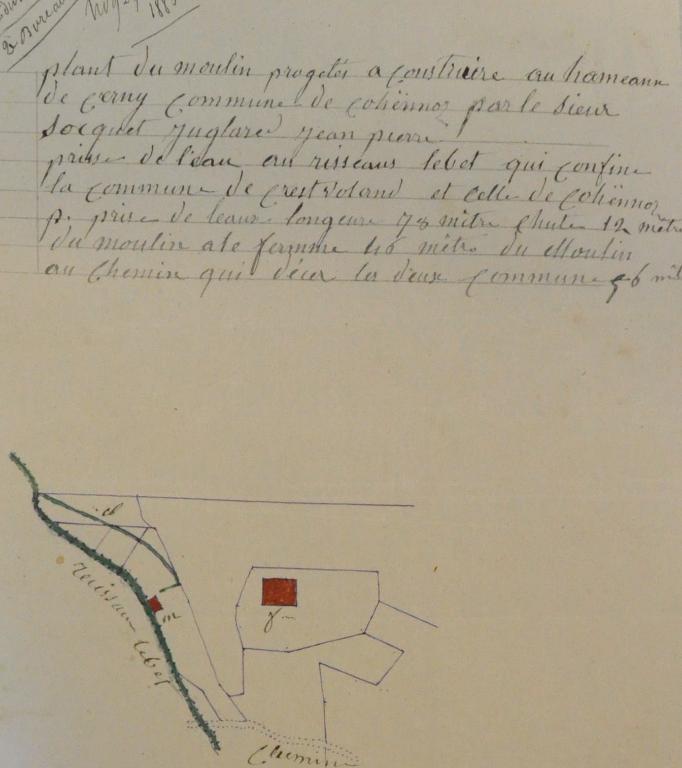 Bureau
1883
plant du moulin progetés a Construire au hameaux
de Cerny Commune de Cohënnoz par le sieur
Socquet Juglard Jean pierre
prise de l'eau au risseaus lebet qui Confine
la Commune de Crestvoland et Celle de Cohënnoz
p. prise de leaux longeure 78 mètre Chute 12 mètre
du moulin a la femme 46 mètre du Moulin
au Chemin qui décer les deux Commune 56
d
m
f
ruissau lebet
Chemin